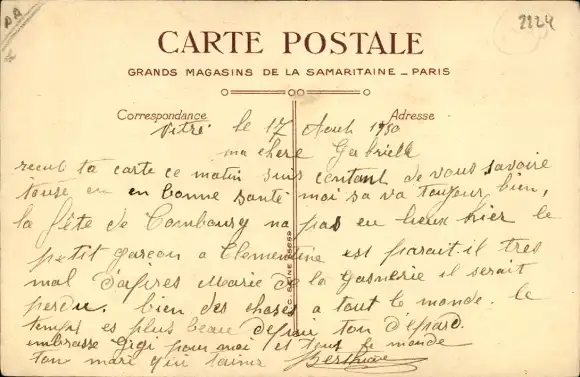 2224
CARTE POSTALE
GRANDS MAGASINS DE LA SAMARITAINE - PARIS
Correspondance
Adresse
Vitré le 17 Aout 1930
ma chere Gabrielle
recut ta carte ce matin suis contant de vous savoire
touse en en bonne santé moi sa va toujour bien,
la fête de Combourg na pas eu lieux hier le
petit garçon a Clementine est parait-il tres
mal d'apres Marie de la Gasnerie il serait
perdu. bien des choses a tout le monde. le
temps es plus beau depuis ton départ.
embrasse Gigi pour moi et tous le monde
ton mari qui taime